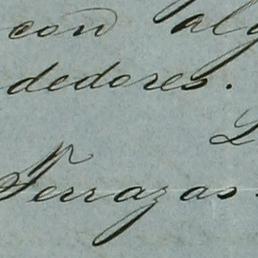 con alg
dedores.
L
Terrazas